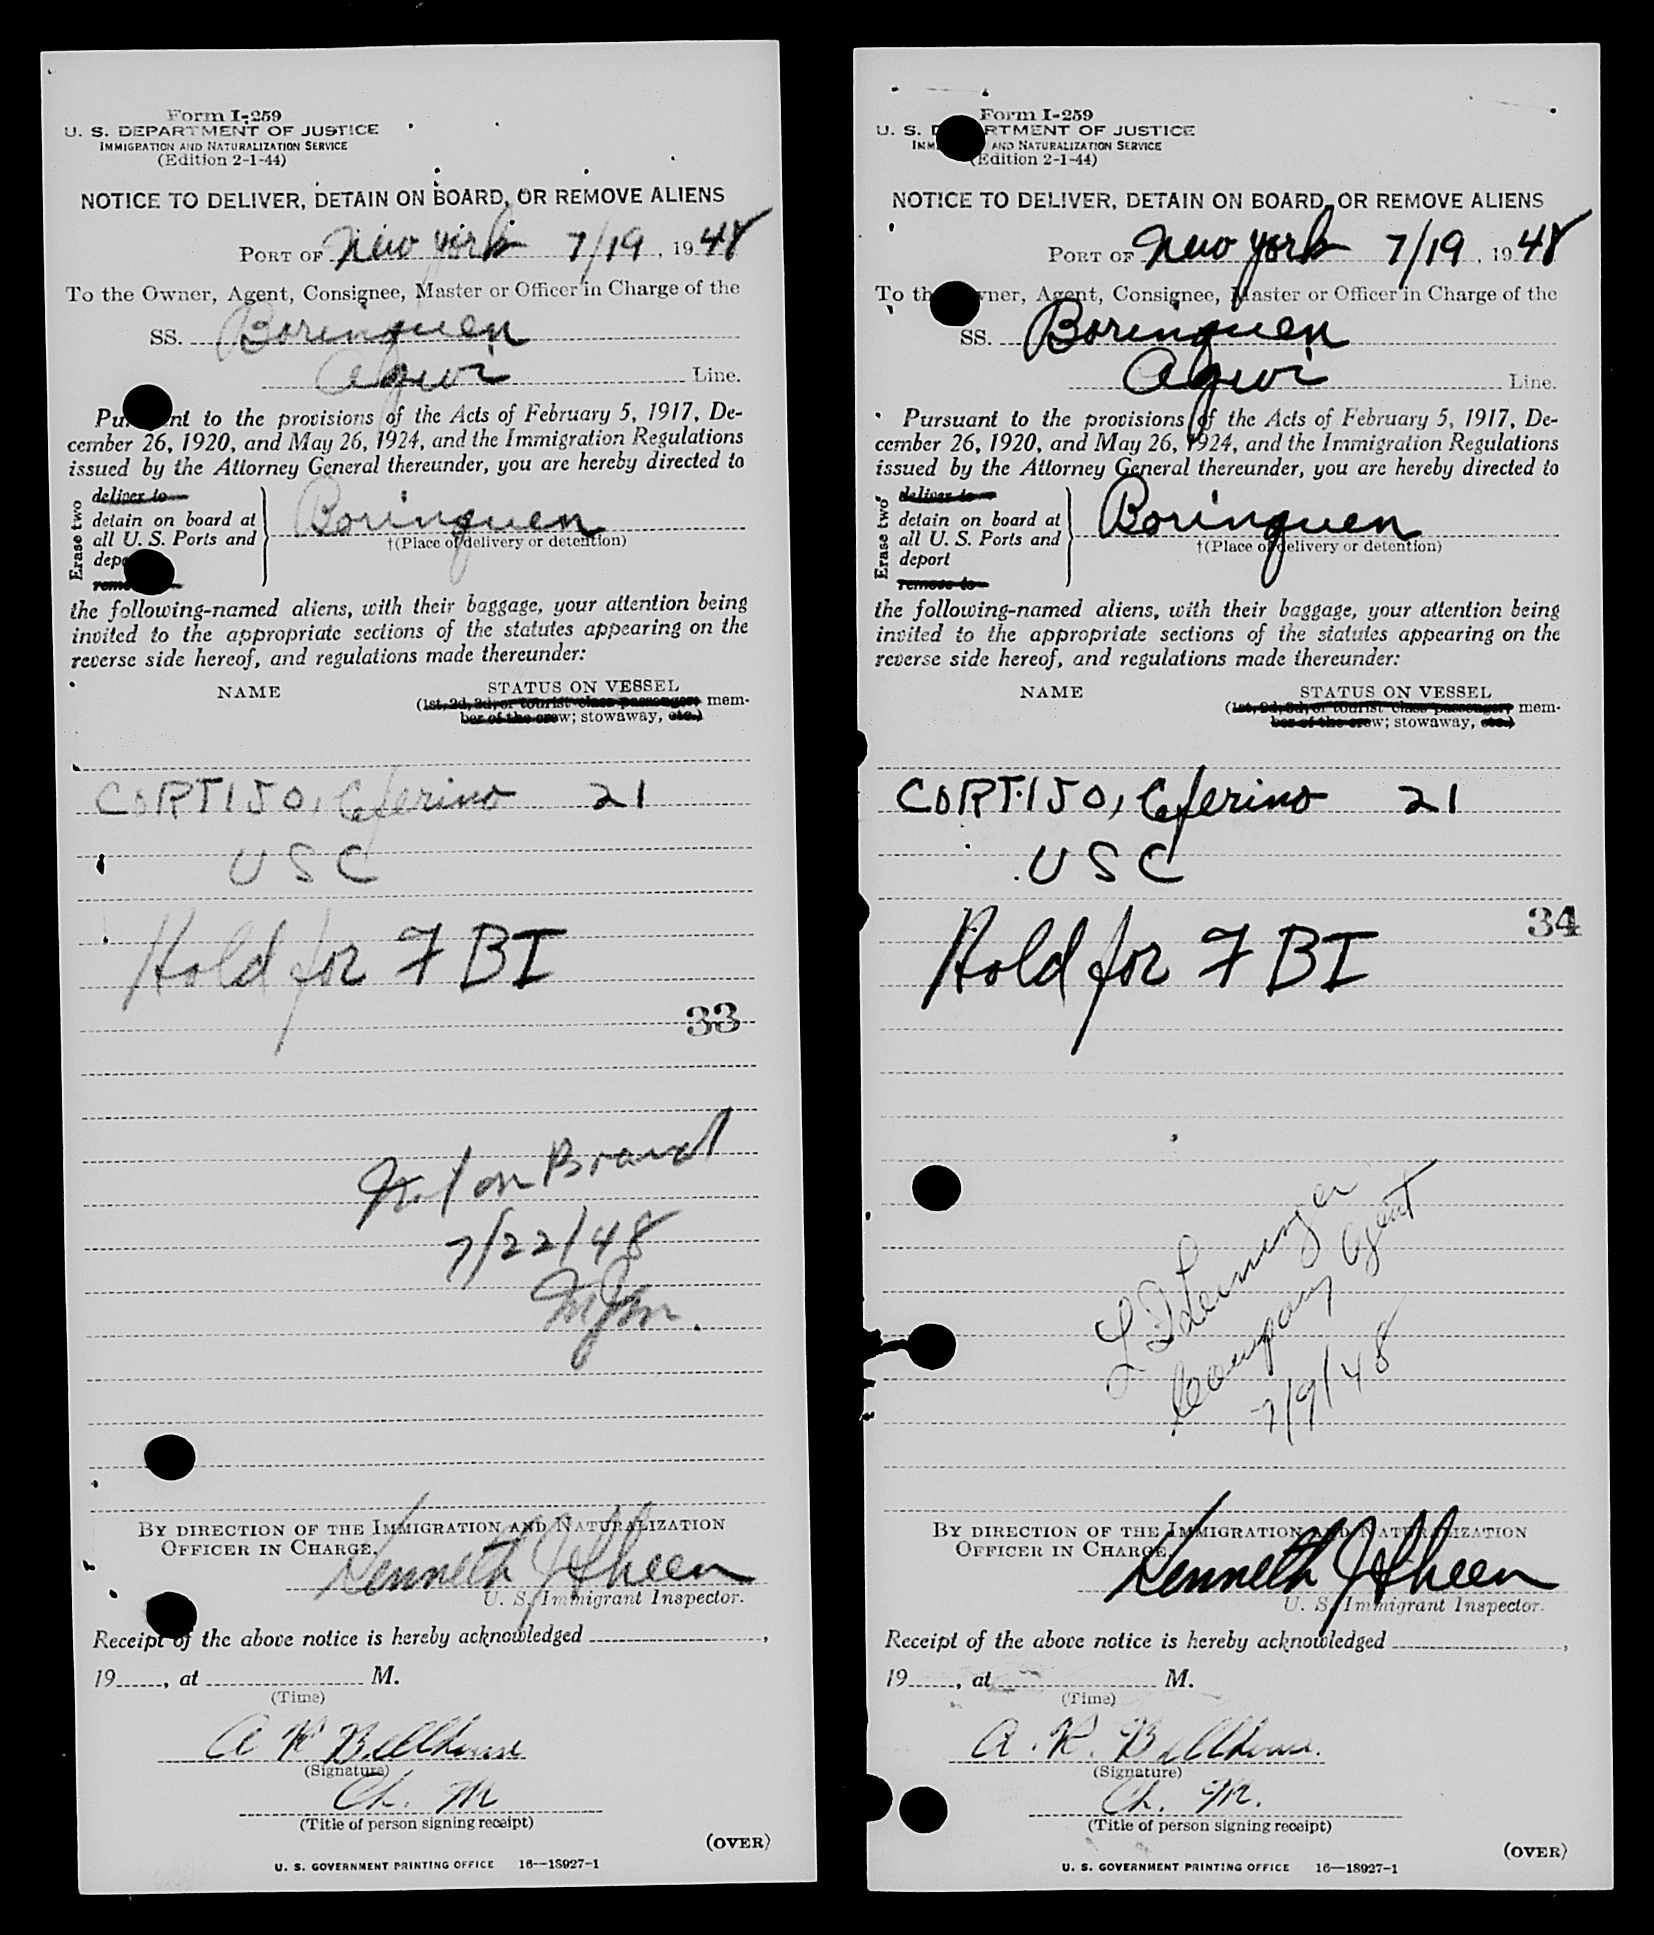 Form I-259
U. S. DEPARTMENT OF JUSTICE
IMMIGRATION AND NATURALIZATION SERVICE
(Edition 2-1-44)
NOTICE TO DELIVER, DETAIN ON BOARD, OR REMOVE ALIENS
PORT OF New York 7/19, 1948
To the Owner, Agent, Consignee, Master or Officer in Charge of the
SS. Borinquen
Agwi Line.
Pursuant to the provisions of the Acts of February 5, 1917, De-
cember 26, 1920, and May 26, 1924, and the Immigration Regulations
issued by the Attorney General thereunder, you are hereby directed to
Erase two
deliver to
detain on board at
all U. S. Ports and
deport
remove to
Borinquen
†(Place of delivery or detention)
the following-named aliens, with their baggage, your attention being
invited to the appropriate sections of the statutes appearing on the
reverse side hereof, and regulations made thereunder:
NAME STATUS ON VESSEL
(1st, 2d, 3d, or tourist class passenger; mem-
ber of the crew; stowaway, etc.)
CORTIJO, Ceferino 21
USC
Hold for FBI
33
Not on Board
7/22/48
BY DIRECTION OF THE IMMIGRATION AND NATURALIZATION
OFFICER IN CHARGE.
Kenneth J Sheen
U. S. Immigrant Inspector.
Receipt of the above notice is hereby acknowledged ,
19 , at M.
(Time)
A R Bellhouse
(Signature)
Ch. M
(Title of person signing receipt)
(OVER)
U. S. GOVERNMENT PRINTING OFFICE 16—18927-1
Form I-259
U. S. DEPARTMENT OF JUSTICE
IMMIGRATION AND NATURALIZATION SERVICE
(Edition 2-1-44)
NOTICE TO DELIVER, DETAIN ON BOARD, OR REMOVE ALIENS
PORT OF New York 7/19, 1948
To the Owner, Agent, Consignee, Master or Officer in Charge of the
SS. Borinquen
Agwi Line.
Pursuant to the provisions of the Acts of February 5, 1917, De-
cember 26, 1920, and May 26, 1924, and the Immigration Regulations
issued by the Attorney General thereunder, you are hereby directed to
Erase two
deliver to
detain on board at
all U. S. Ports and
deport
remove to
Borinquen
†(Place of delivery or detention)
the following-named aliens, with their baggage, your attention being
invited to the appropriate sections of the statutes appearing on the
reverse side hereof, and regulations made thereunder:
NAME STATUS ON VESSEL
(1st, 2d, 3d, or tourist class passenger; mem-
ber of the crew; stowaway, etc.)
CORTIJO, Ceferino 21
USC
34
Hold for FBI
Company Agent
7/9/48
BY DIRECTION OF THE IMMIGRATION AND NATURALIZATION
OFFICER IN CHARGE.
Kenneth J Sheen
U. S. Immigrant Inspector.
Receipt of the above notice is hereby acknowledged ,
19 , at M.
(Time)
A. R. Bellhouse.
(Signature)
Ch. M.
(Title of person signing receipt)
(OVER)
U. S. GOVERNMENT PRINTING OFFICE 16—18927-1